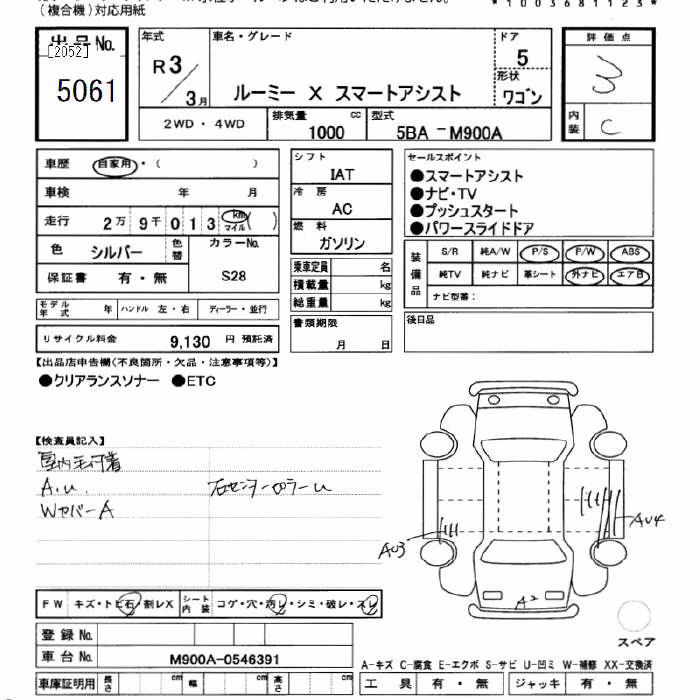 (複合機)対応用紙
*1003681123*
出品No.
[2052]
5061
年式
R3/3月
車名・グレード
ルーミー X スマートアシスト
ドア
5
形状
ワゴン
評価点
3
内装
C
2WD・4WD
排気量
1000 cc
型式
5BA-M900A
車歴 自家用・( )
車検 年 月
走行 2万 9千 0 1 3 km マイル ( )
色 シルバー 色替
カラーNo. S28
保証書 有・無
モデル年式 年 ハンドル 左・右 ディーラー・並行
リサイクル料金 9,130 円 預託済
シフト
IAT
冷房
AC
燃料
ガソリン
乗車定員 名
積載量 kg
総重量 kg
書類期限
月 日
セールスポイント
●スマートアシスト
●ナビ・TV
●プッシュスタート
●パワースライドドア
装備品
S/R 純A/W P/S P/W ABS
純TV 純ナビ 革シート 外ナビ エアB
ナビ型番:
後日品
【出品店申告欄(不良箇所・欠品・注意事項等)】
●クリアランスソナー ●ETC
【検査員記入】
室内毛付着
A.U.
右センターピラーU
WカバーA
AU3
AU4
A2
FW キズ・トビ石・割レX シート内装 コゲ・穴・汚レ・シミ・破レ・スレ
登録No.
車台No. M900A-0546391
車庫証明用 長さ cm 幅 cm 高さ cm
スペア
A-キズ C-腐食 E-エクボ S-サビ U-凹ミ W-補修 XX-交換済
工具 有・無 ジャッキ 有・無